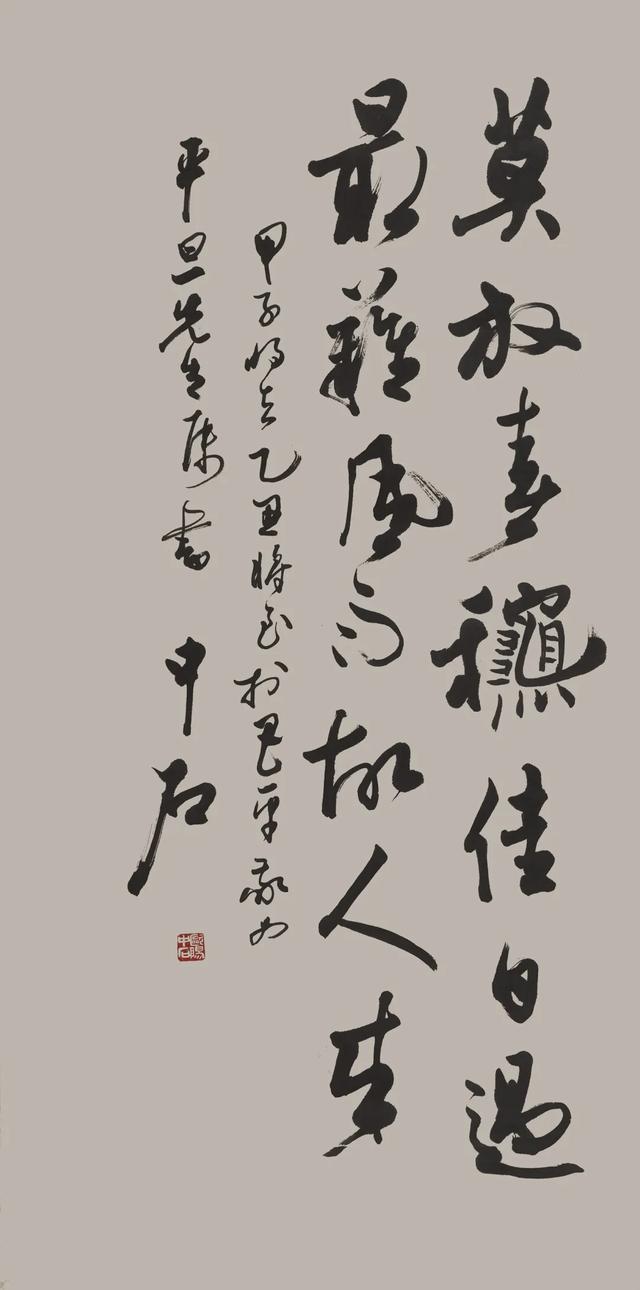 莫放春龝佳日過
最難風雨故人來
甲子将去乙丑將至於平敬如
平旦先生属書 中石
歐陽中石